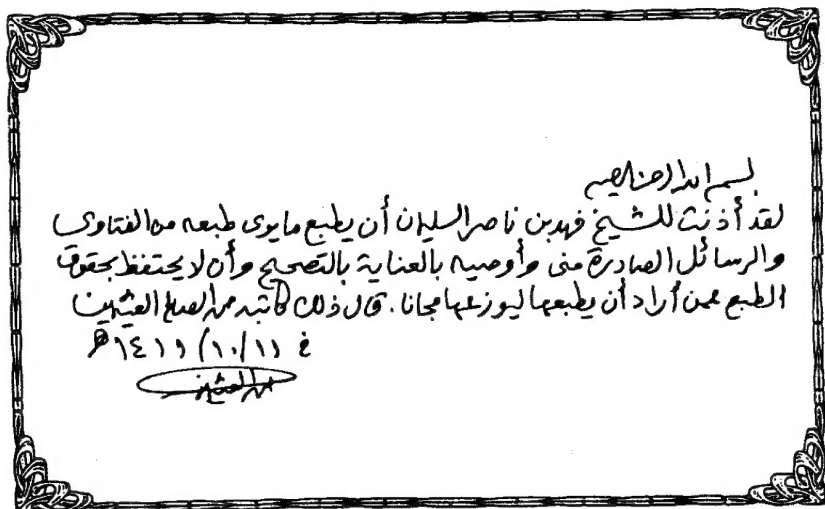 بسم الله الرحمن الرحيم
لقد أذنت للشيخ فهد بن ناصر السليمان أن يطبع ما يرى طبعه من الفتاوى
والرسائل الصادرة منى وأوصيه بالعناية بالتصحيح وأن لا يحتفظ بحقوق
الطبع عمن أراد أن يطبعها ليوزعها مجانا. قال ذلك كاتبه محمد الصالح العثيمين
في ١١/١٠/١٤١٩ ه
محمد العثيمين